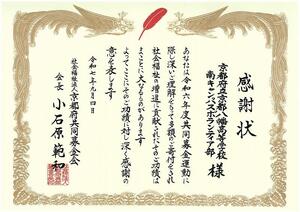 感謝状
京都府立京都八幡高等学校
南キャンパスボランティア部 様
あなたは令和六年度共同募金運動に
際し深いご理解をもって多額のご寄付をされ
社会福祉の増進に貢献されたその功績は
まことに大なるものがあります
よってここにそのご功績に対し深く感謝の
意を表します
令和七年九月四日
社会福祉法人 京都府共同募金会
会長 小石原範和